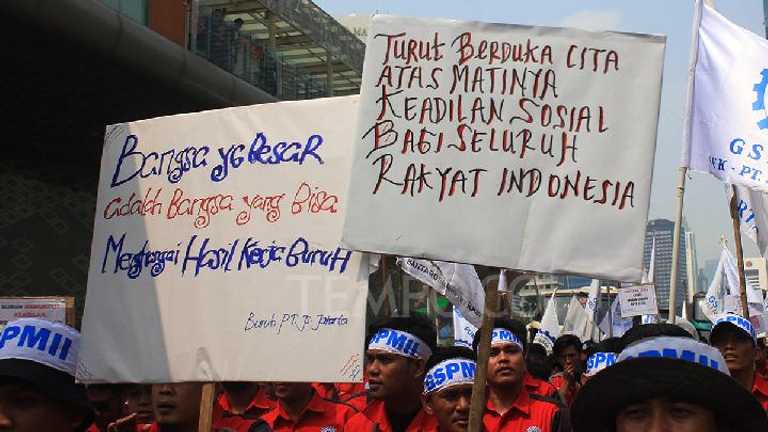 Bangsa yg Besar
adalah Bangsa yang Bisa
Menghargai Hasil Kerja Buruh
Buruh PT. JS. Jakarta
TURUT BERDUKA CITA
ATAS MATINYA
KEADILAN SOSIAL
BAGI SELURUH
RAKYAT INDONESIA
GS
SPMII
GSPMII
GSPMII
TEMPO.CO